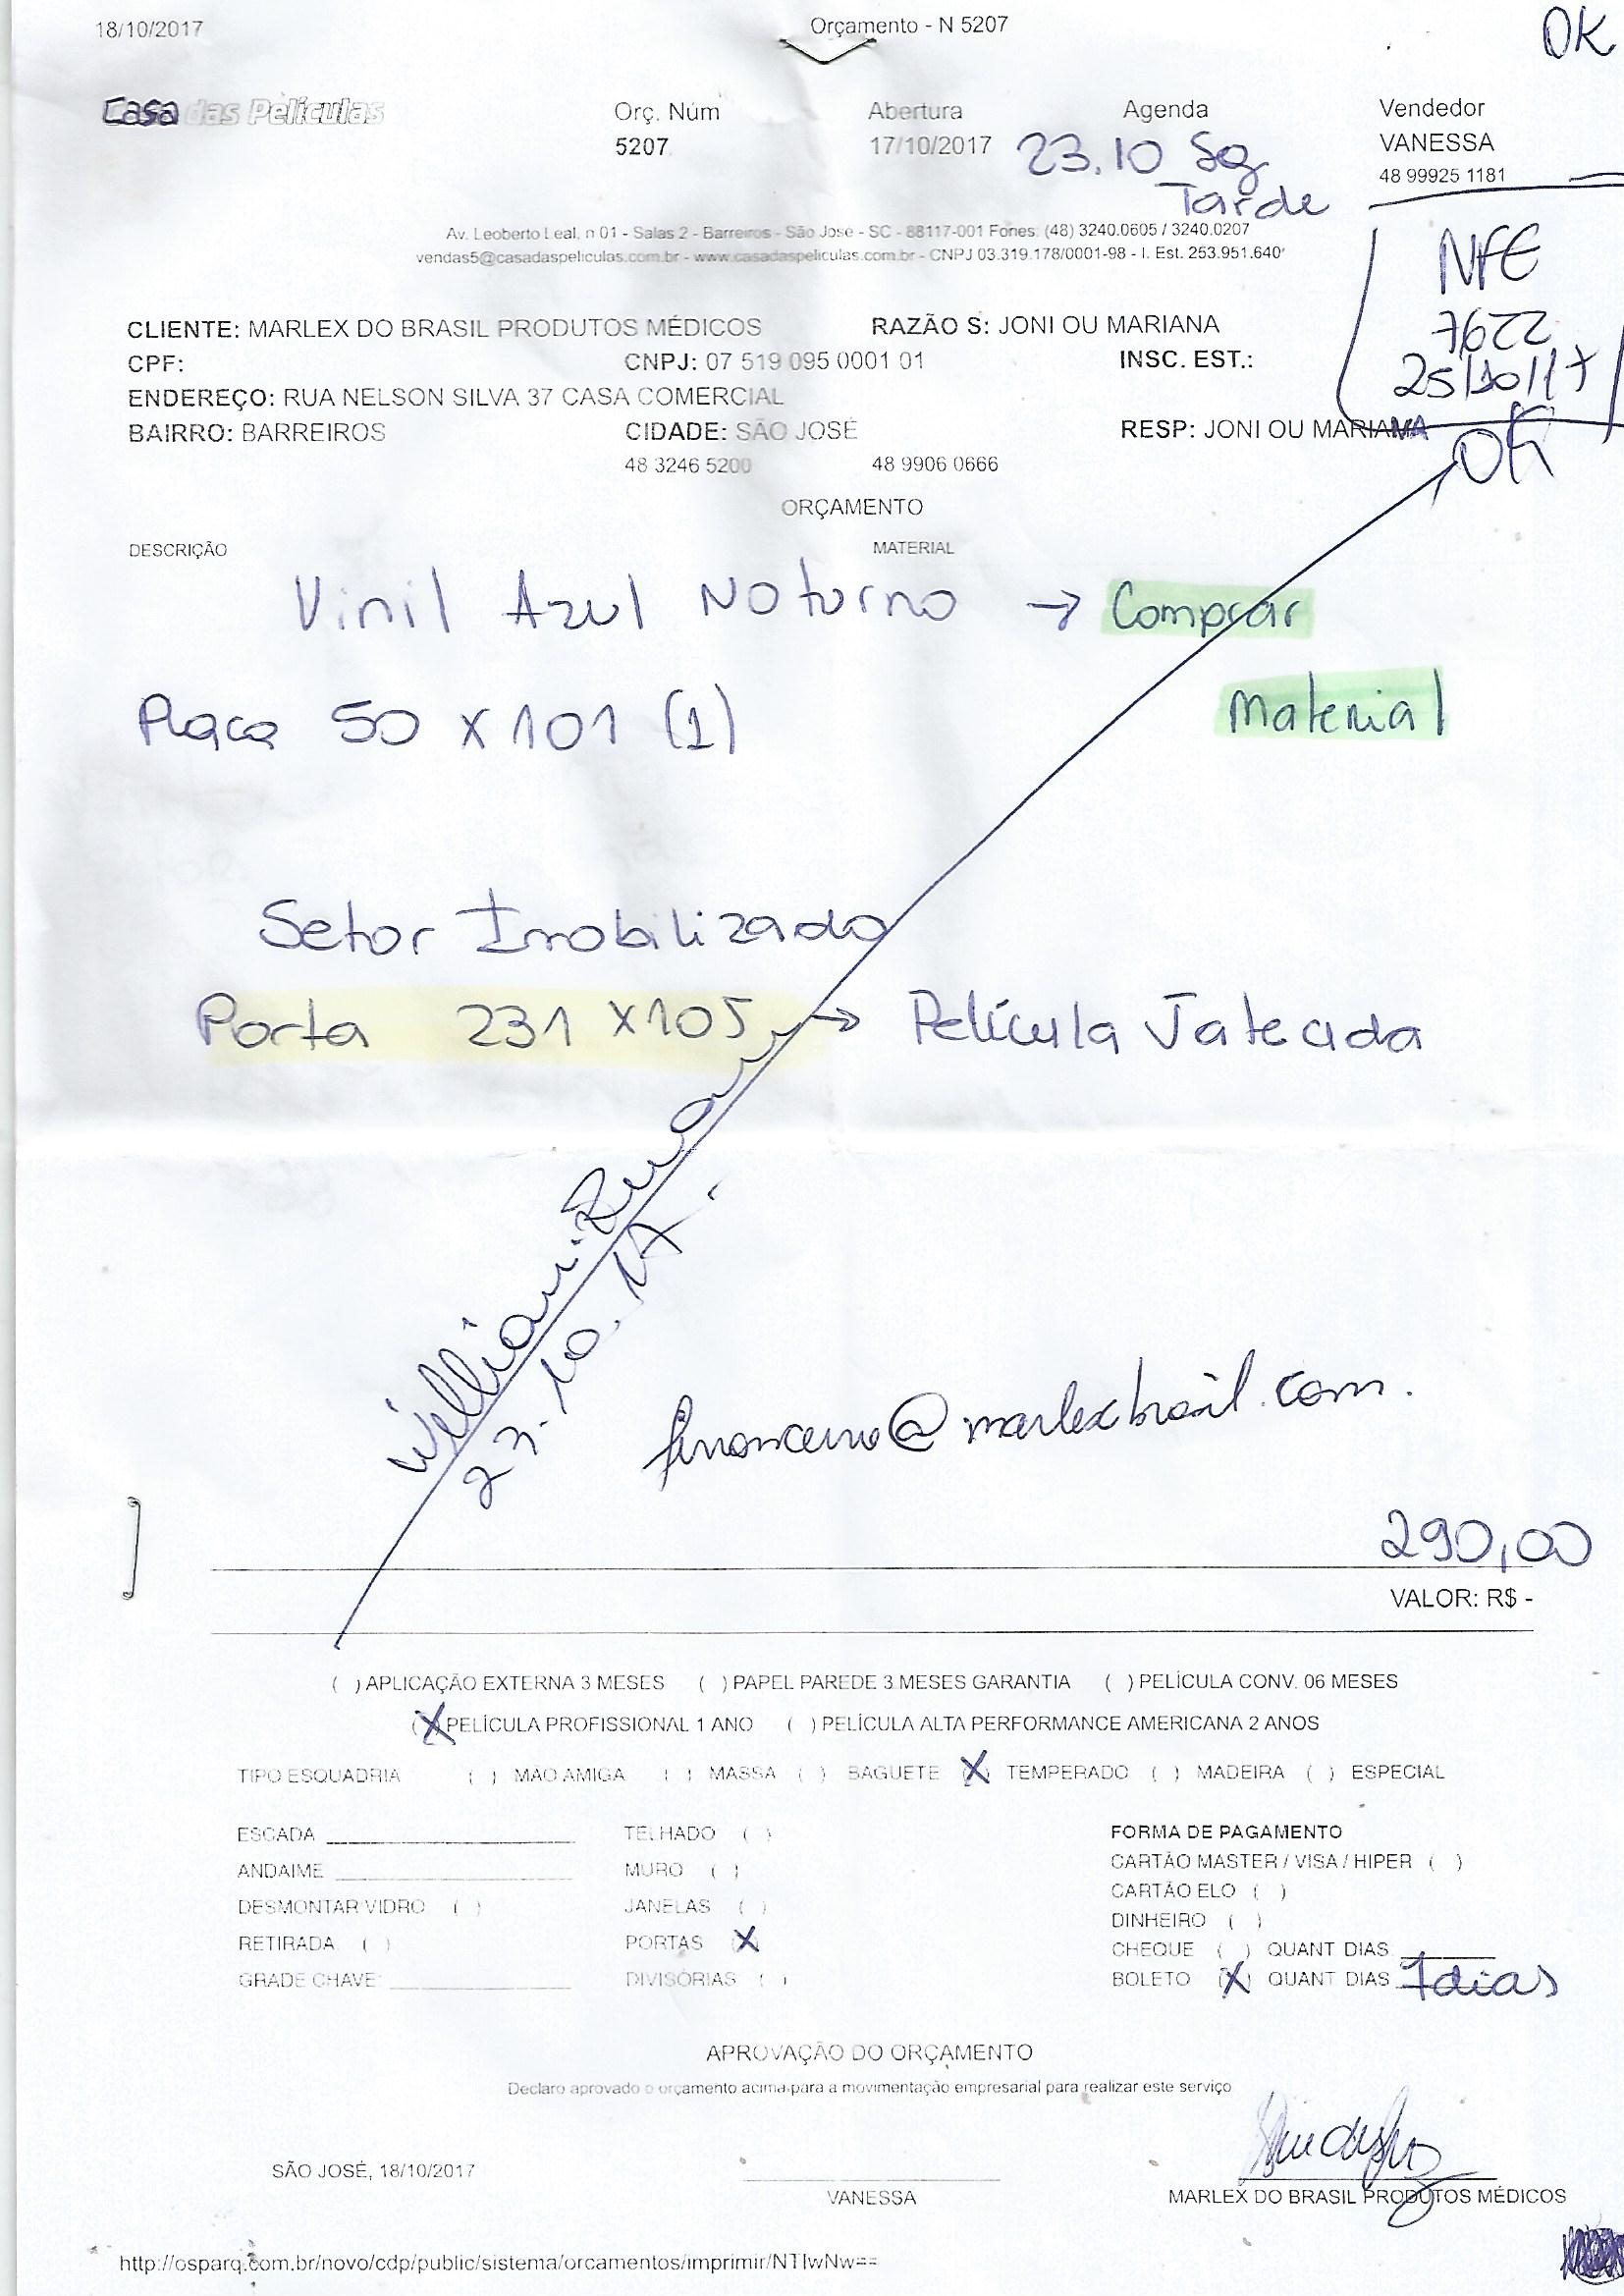 18/10/2017 Orçamento - N 5207 OK
Casa das Películas Orç. Núm Abertura Agenda Vendedor
5207 17/10/2017 23.10 Sg VANESSA
Tarde 48 99925 1181
Av. Leoberto Leal, n 01 - Salas 2 - Barreiros - São José - SC - 88117-001 Fones: (48) 3240.0605 / 3240.0207
vendas5@casadaspeliculas.com.br - www.casadaspeliculas.com.br - CNPJ 03.319.178/0001-98 - I. Est. 253.951.640
NFE
7622
25/10/17
OK
CLIENTE: MARLEX DO BRASIL PRODUTOS MÉDICOS RAZÃO S: JONI OU MARIANA
CPF: CNPJ: 07 519 095 0001 01 INSC. EST.:
ENDEREÇO: RUA NELSON SILVA 37 CASA COMERCIAL
BAIRRO: BARREIROS CIDADE: SÃO JOSÉ RESP: JONI OU MARIANA
48 3246 5200 48 9906 0666
ORÇAMENTO
DESCRIÇÃO MATERIAL
Vinil Azul Noturno → Comprar
Placa 50 x 101 (1) Material
Setor Imobilizado
Porta 231 x 105 → Película Jateada
Willian
23.10.17.
financeiro@marlexbrasil.com.
290,00
VALOR: R$ -
( ) APLICAÇÃO EXTERNA 3 MESES ( ) PAPEL PAREDE 3 MESES GARANTIA ( ) PELÍCULA CONV. 06 MESES
(X) PELÍCULA PROFISSIONAL 1 ANO ( ) PELÍCULA ALTA PERFORMANCE AMERICANA 2 ANOS
TIPO ESQUADRIA ( ) MAO AMIGA ( ) MASSA ( ) BAGUETE (X) TEMPERADO ( ) MADEIRA ( ) ESPECIAL
ESCADA TELHADO ( ) FORMA DE PAGAMENTO
ANDAIME MURO ( ) CARTÃO MASTER / VISA / HIPER ( )
DESMONTAR VIDRO ( ) JANELAS ( ) CARTÃO ELO ( )
RETIRADA ( ) PORTAS (X) DINHEIRO ( )
GRADE CHAVE: DIVISÓRIAS ( ) CHEQUE ( ) QUANT DIAS
BOLETO (X) QUANT DIAS 7 dias
APROVAÇÃO DO ORÇAMENTO
Declaro aprovado o orçamento acima para a movimentação empresarial para realizar este serviço
SÃO JOSÉ, 18/10/2017
VANESSA MARLEX DO BRASIL PRODUTOS MÉDICOS
http://osparq.com.br/novo/cdp/public/sistema/orcamentos/imprimir/NTIwNw==